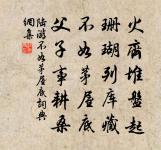 火齊堆盤起
珊瑚列庫藏
不如茅屋底
父子事耕桑
陸游不如茅屋底詞典
網集